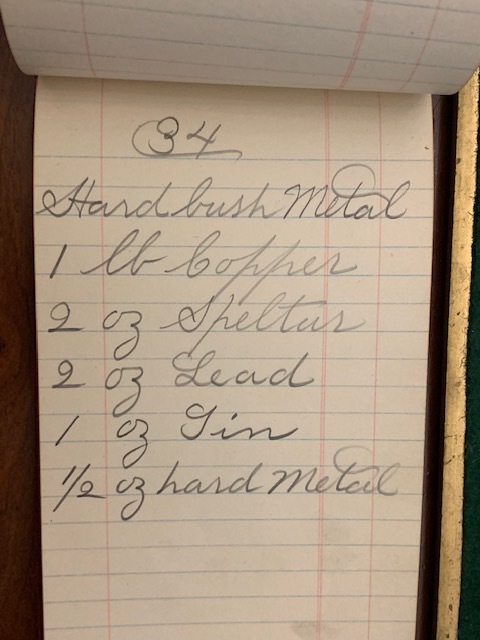 34
Hard bush Metal
1 lb Copper
2 oz Speltur
2 oz Lead
1 oz Tin
1/2 oz hard Metal